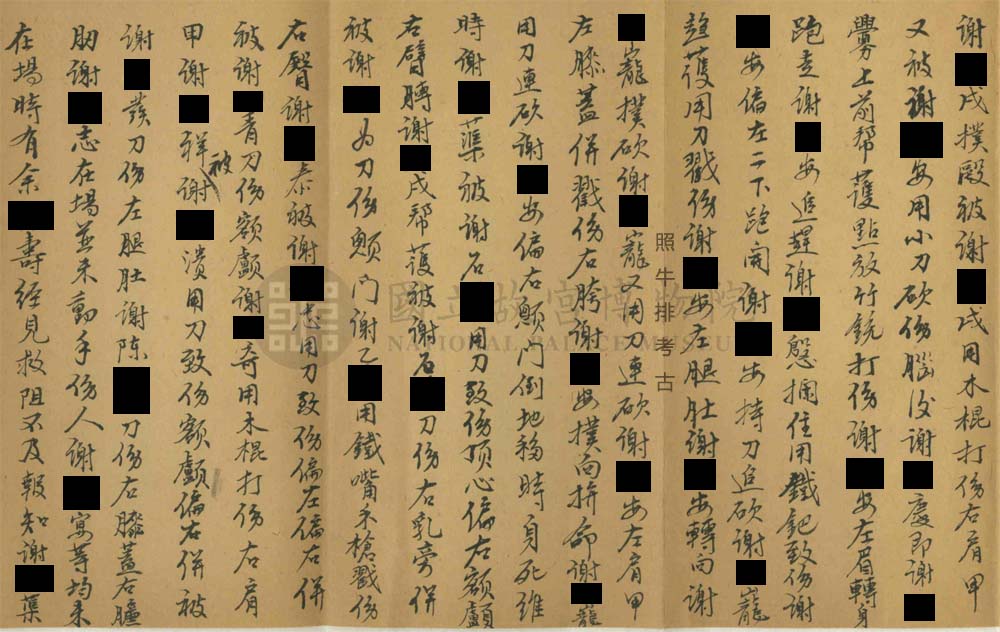 謝■戍撲毆被謝■戍用木棍打傷右肩甲
又被謝■安用小刀砍傷腦後謝■慶即謝■
黌上前帮護點放竹銃打傷謝■安左眉轉身
跑走謝■安追趕謝■慇攔住用鐵鈀致傷謝
■安偏左二下跑開謝■安持刀追砍謝■巃
趕護用刀戳傷謝■安左腿肚謝■安轉向謝
■巃撲砍謝■巃又用刀連砍謝■安左肩甲
左膝蓋併戳傷右胯謝■安撲向拚命謝■巃
用刀連砍謝■安偏右顖門倒地移時身死維
時謝■蕖被謝石■用刀致傷頂心偏右額顱
右臂膊謝■戍帮護被謝石■刀傷右乳旁併
被謝■為刀傷顖門謝乙■用鐵嘴禾槍戳傷
右臀謝■泰被謝■志用刀致傷偏左偏右併
被謝■青刀傷額顱謝■奇用木棍打傷右肩
甲謝■祥被謝■潰用刀致傷額顱偏右併被
謝■羙刀傷左腿肚謝陈■刀傷右膝蓋右臁
肕謝■志在場並未動手傷人謝■寔等均未
在場時有余■壽經見救阻不及報知謝■蕖
照牛排考古
國立故宮博物院
NATIONAL PALACE MUSEUM